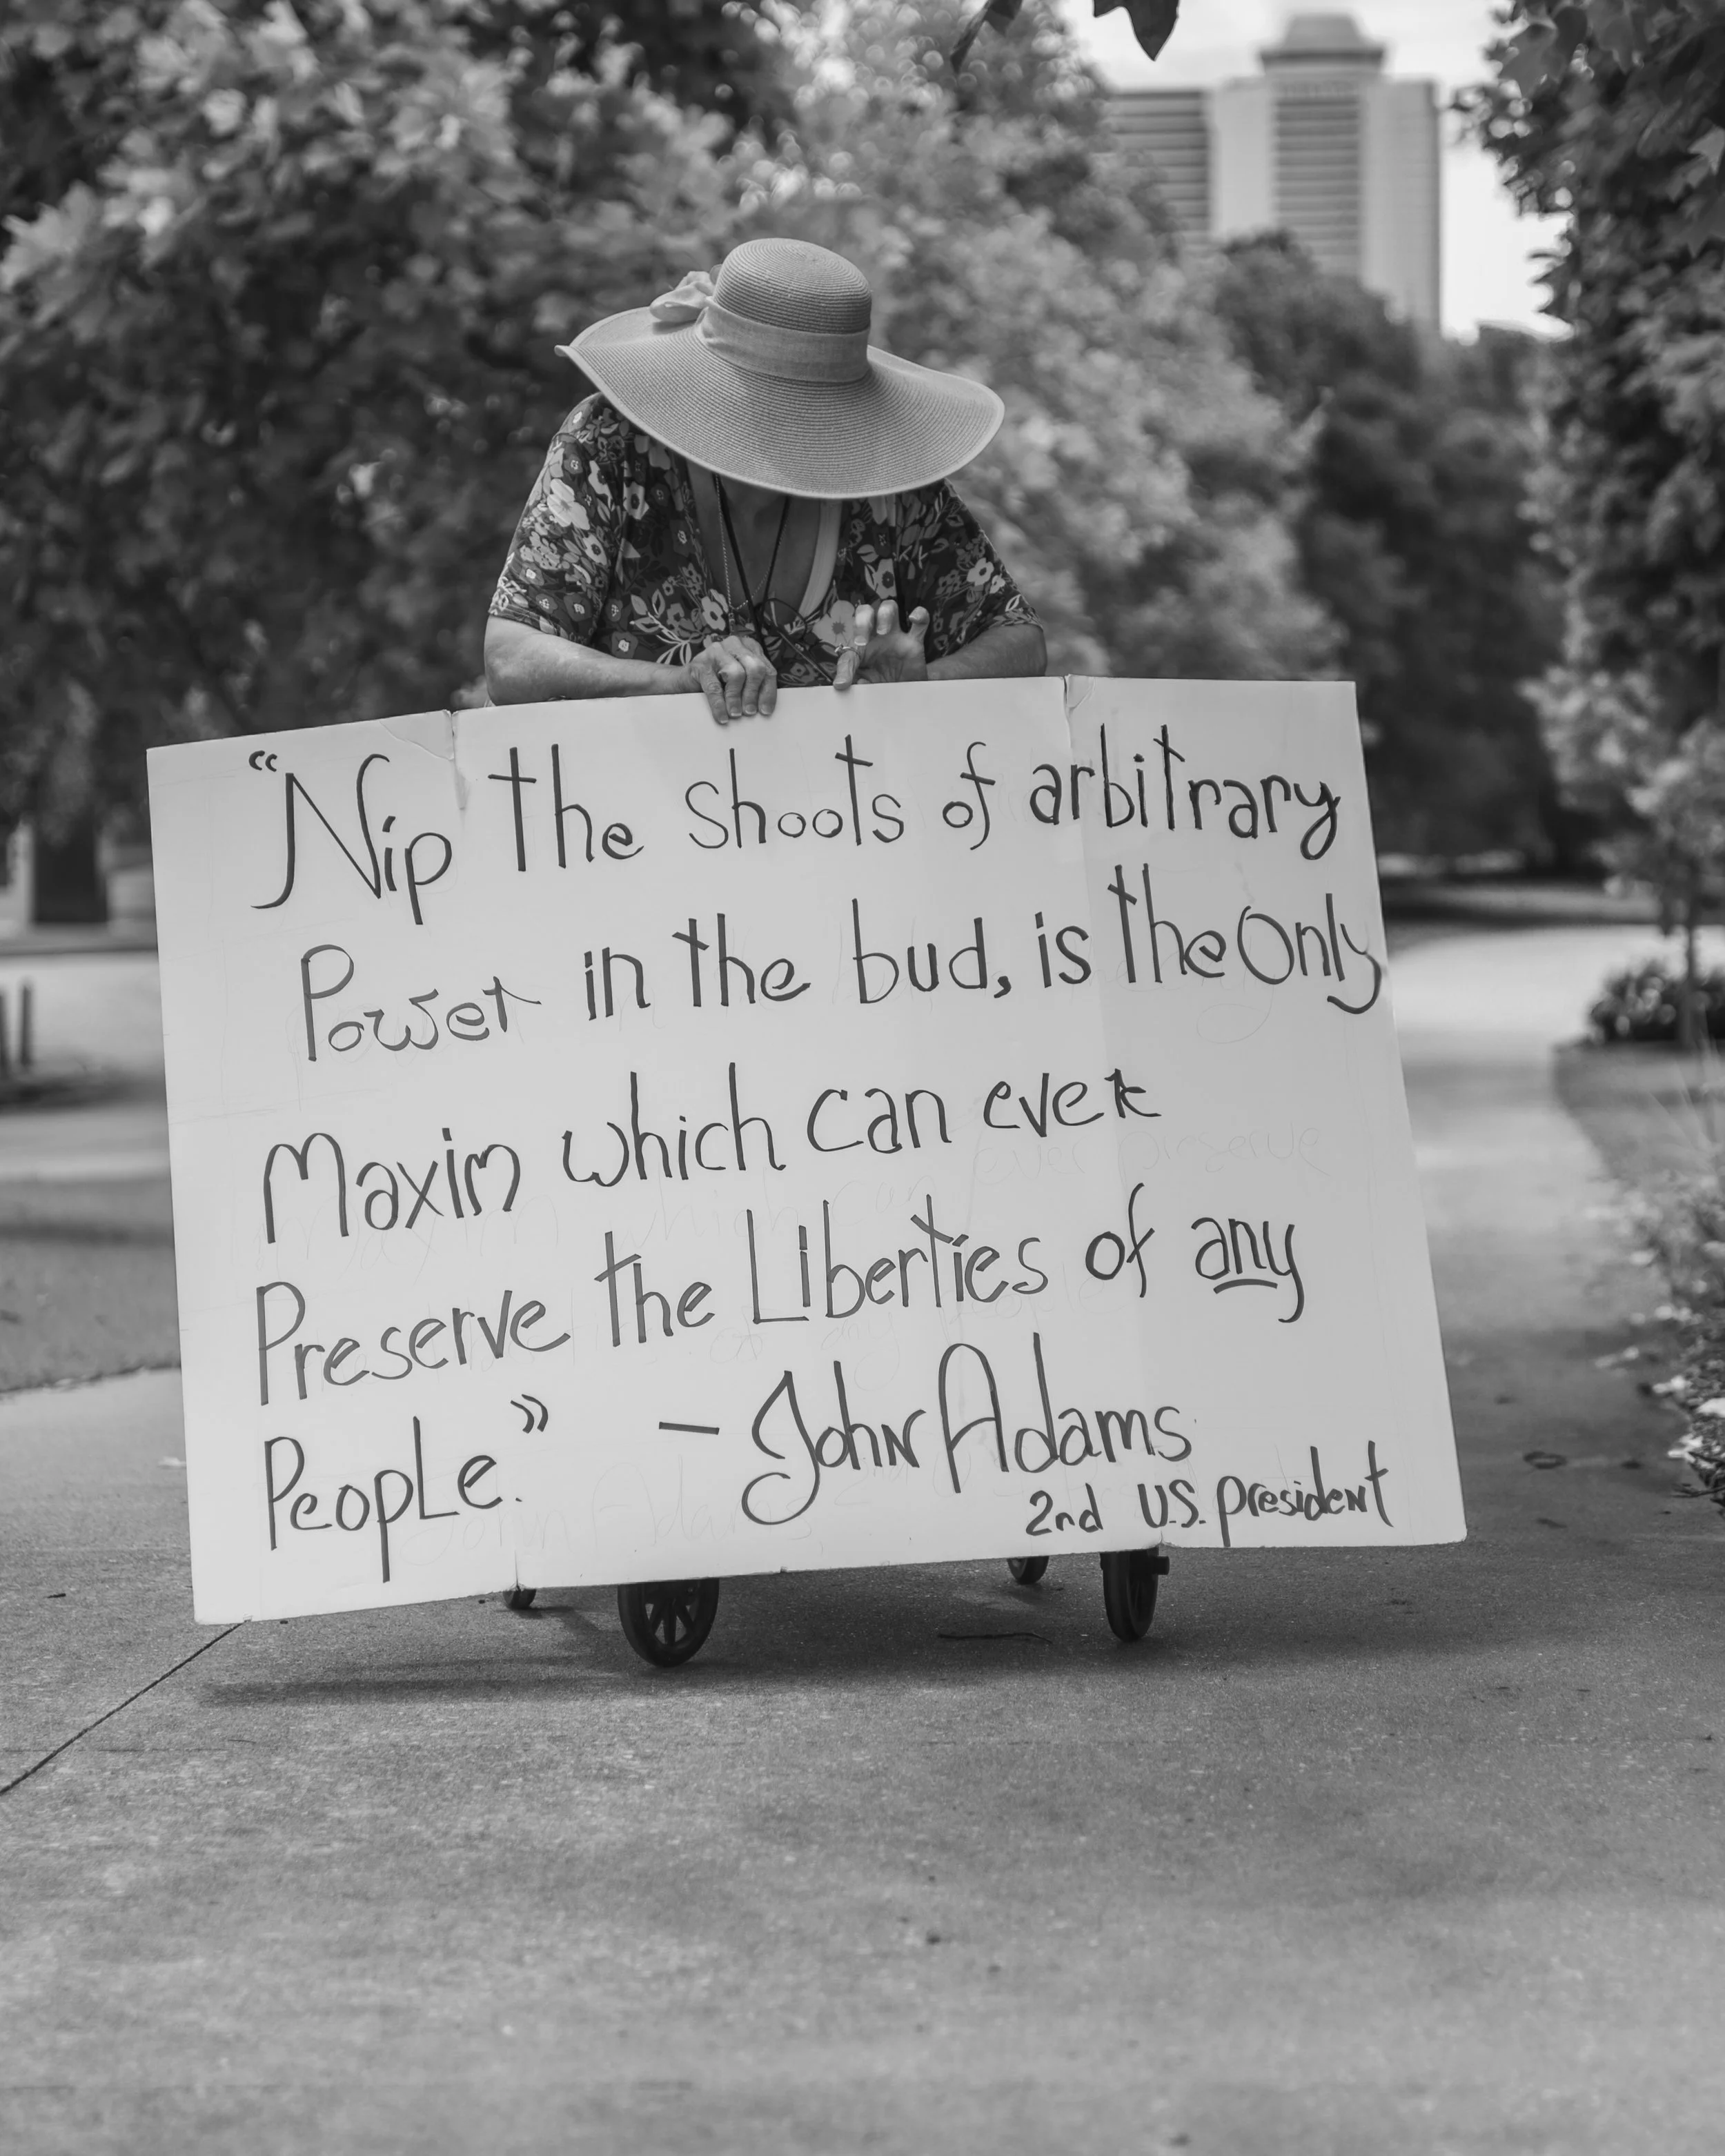 "Nip the shoots of arbitrary
Power in the bud, is the Only
Maxim which can ever
Preserve the Liberties of any
People." - John Adams
2nd U.S. president